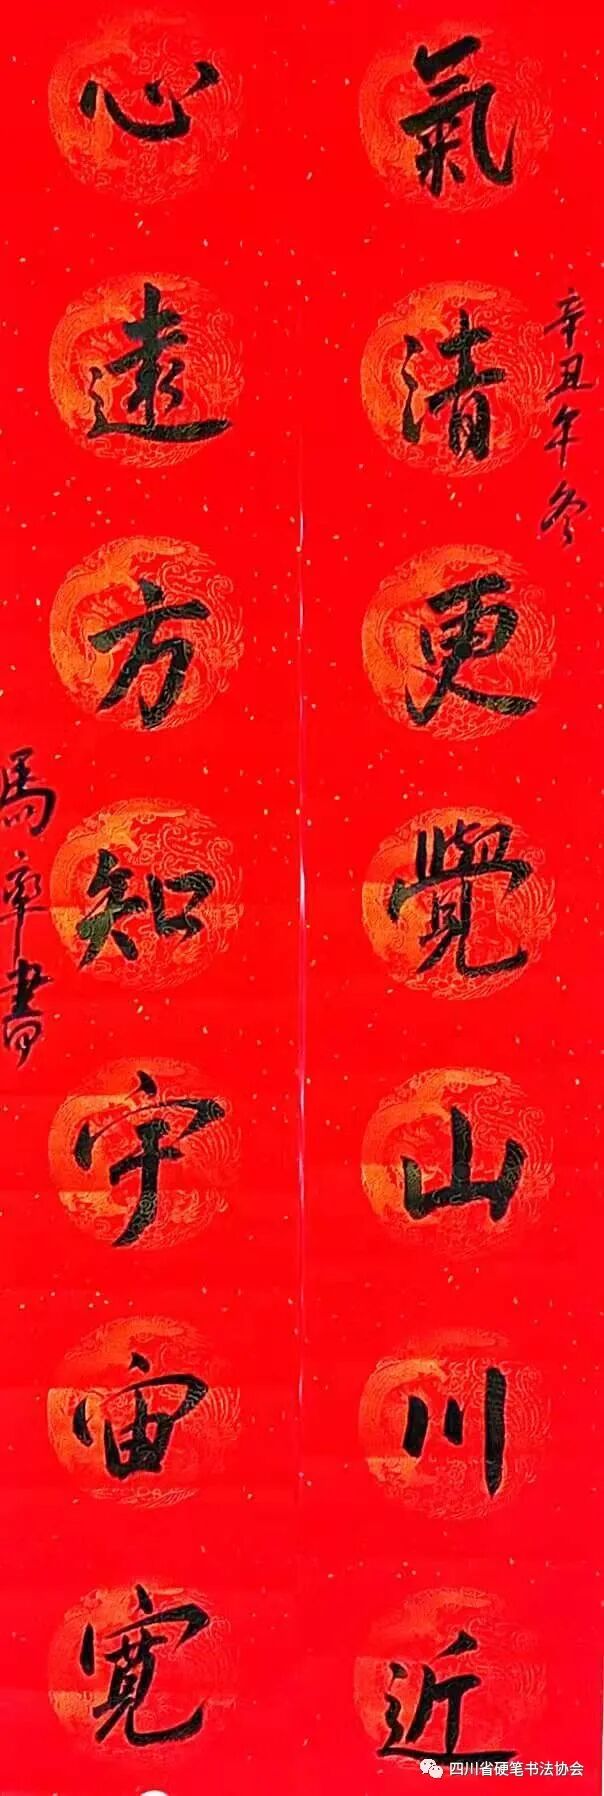 氣清更覺山川近
辛丑年冬
心遠方知宇宙寬
馬率書
四川省硬笔书法协会